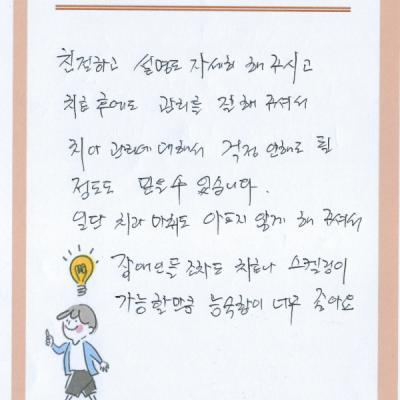 친절하고 설명도 자세히 해 주시고
치료 후에도 관리를 잘 해 주셔서
치아 관리에 대해서 걱정 안해도 될
정도로 믿을 수 있습니다.
일단 치과 마취도 아프지 않게 해 주셔서
장애인들 조차도 치료나 스켈링이
가능할만큼 능숙함이 너무 좋아요